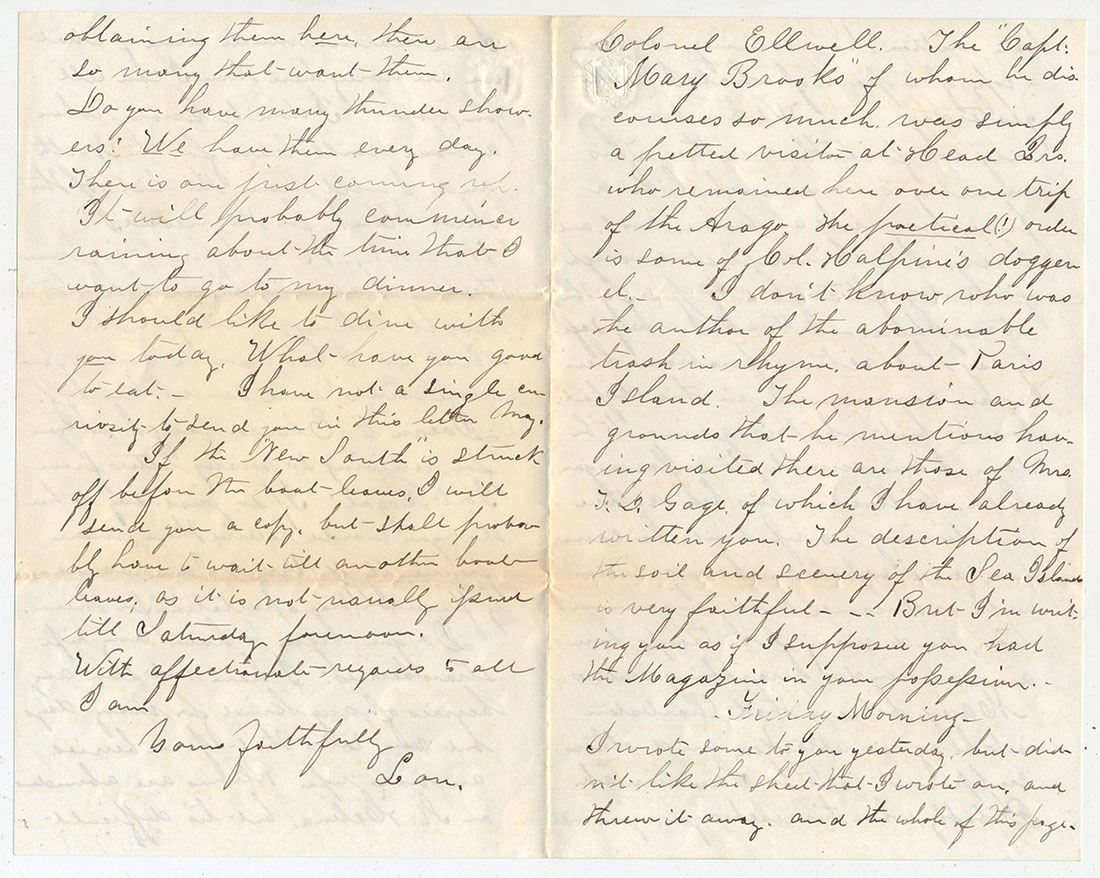 obtaining them here, there are
so many that want them.
Do you have many thunder show-
ers? We have them every day.
There is one just coming up.
It will probably commence
raining about the time that I
want to go to my dinner.
I should like to dine with
you today. What have you good
to eat. - I have not a single cu
riosity to send you in this letter May.
If the "New South" is struck
off before the boat leaves, I will
send you a copy, but shall proba-
bly have to wait till another boat
leaves, as it is not usually issued
till Saturday forenoon.
With affectionate regards to all
I am
Yours faithfully
Lou.
Colonel Ellwell. The "Capt.
Mary Brooks" of whom he dis
courses so much, was simply
a petted visitor at Head Qrs.
who remained here over one trip
of the Arago. The poetical (!) order
is some of Col. Halpine's dogger
el. - I don't know who was
the author of the abominable
trash in rhyme, about Paris
Island. The mansion and
grounds that he mentions hav-
ing visited there are those of Mrs.
F. D. Gage, of which I have already
written you. The description of
the soil and scenery of the Sea Islands
is very faithful - - - But I'm writ-
ing you as if I supposed you had
the Magazine in your possession. -
- Friday Morning -
I wrote some to you yesterday, but did-
n't like the sheet that I wrote on, and
threw it away, and the whole of this page-